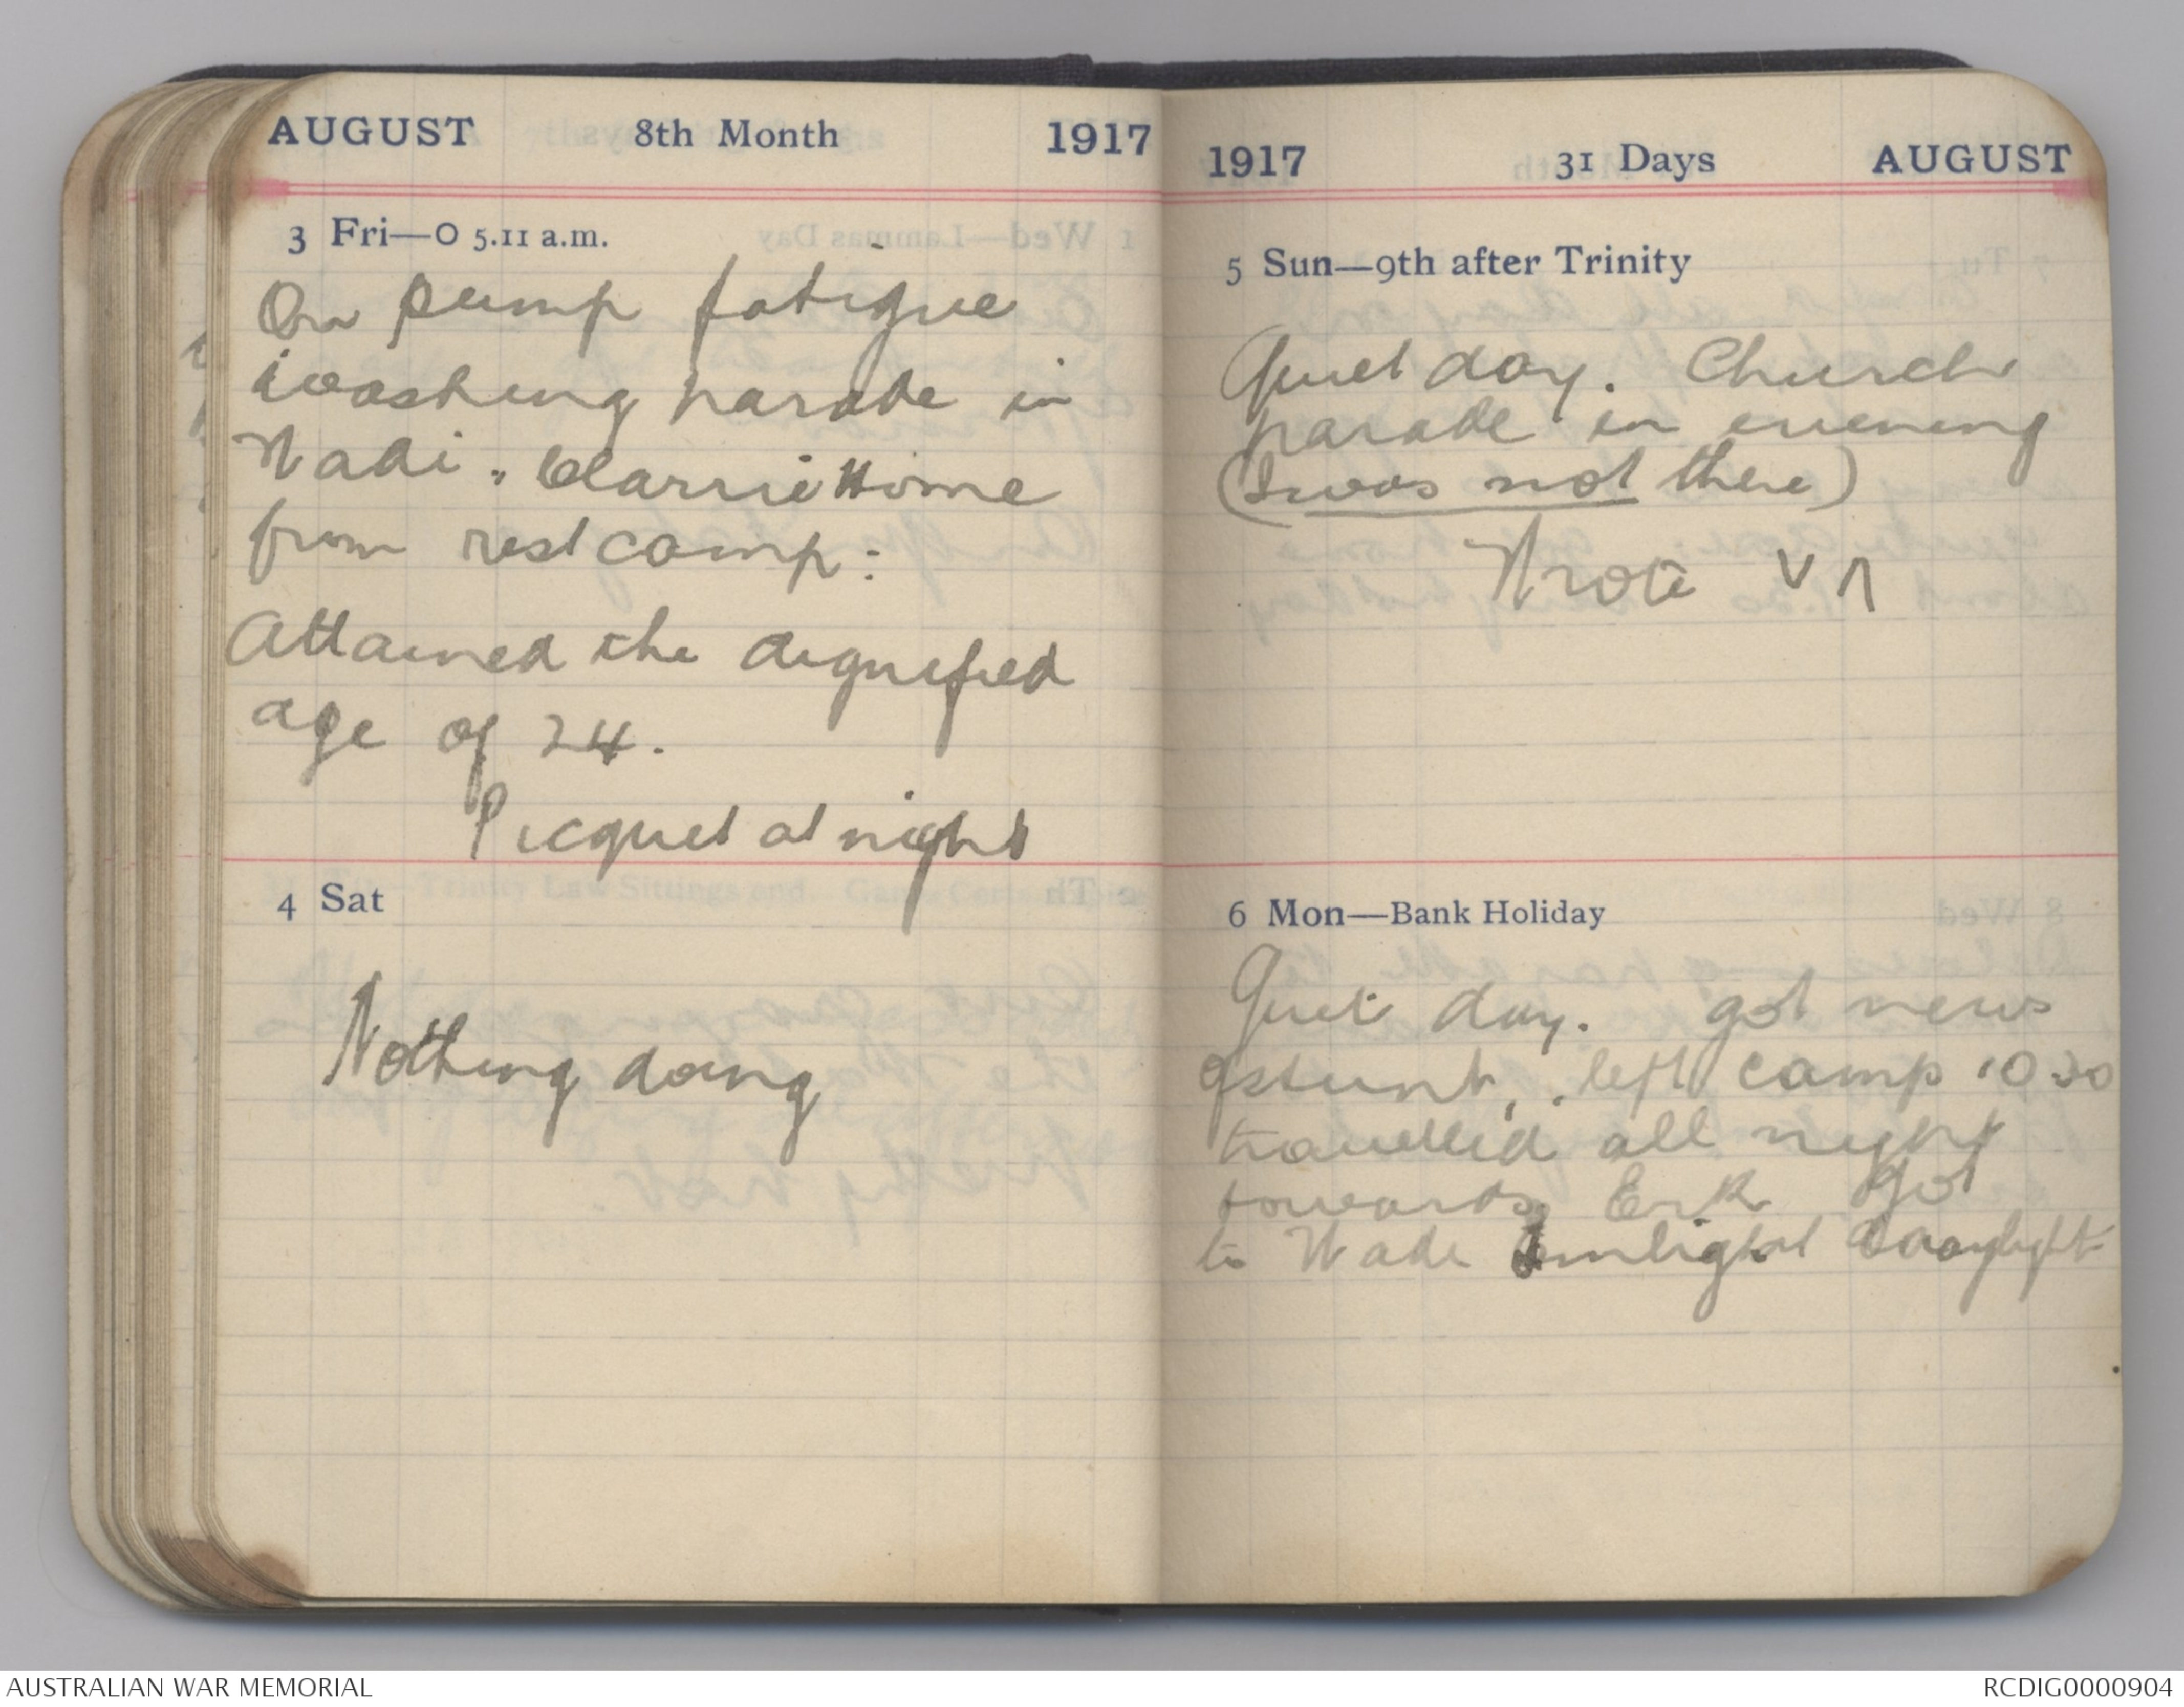 AUGUST 8th Month 1917
3 Fri—O 5.11 a.m.
On pump fatigue
washing parade in
Wadi. Clarrie Home
from rest camp:
Attained the dignified
age of 24.
Picquet at night
4 Sat
Nothing doing
1917 31 Days AUGUST
5 Sun—9th after Trinity
Quiet day. Church
parade in evening
(I was not there)
Wrote
6 Mon—Bank Holiday
Quiet day. got news
of stunt, left camp 10.30
travelled all night
towards Erk got
to Wadi at daylight
AUSTRALIAN WAR MEMORIAL
RCDIG0000904